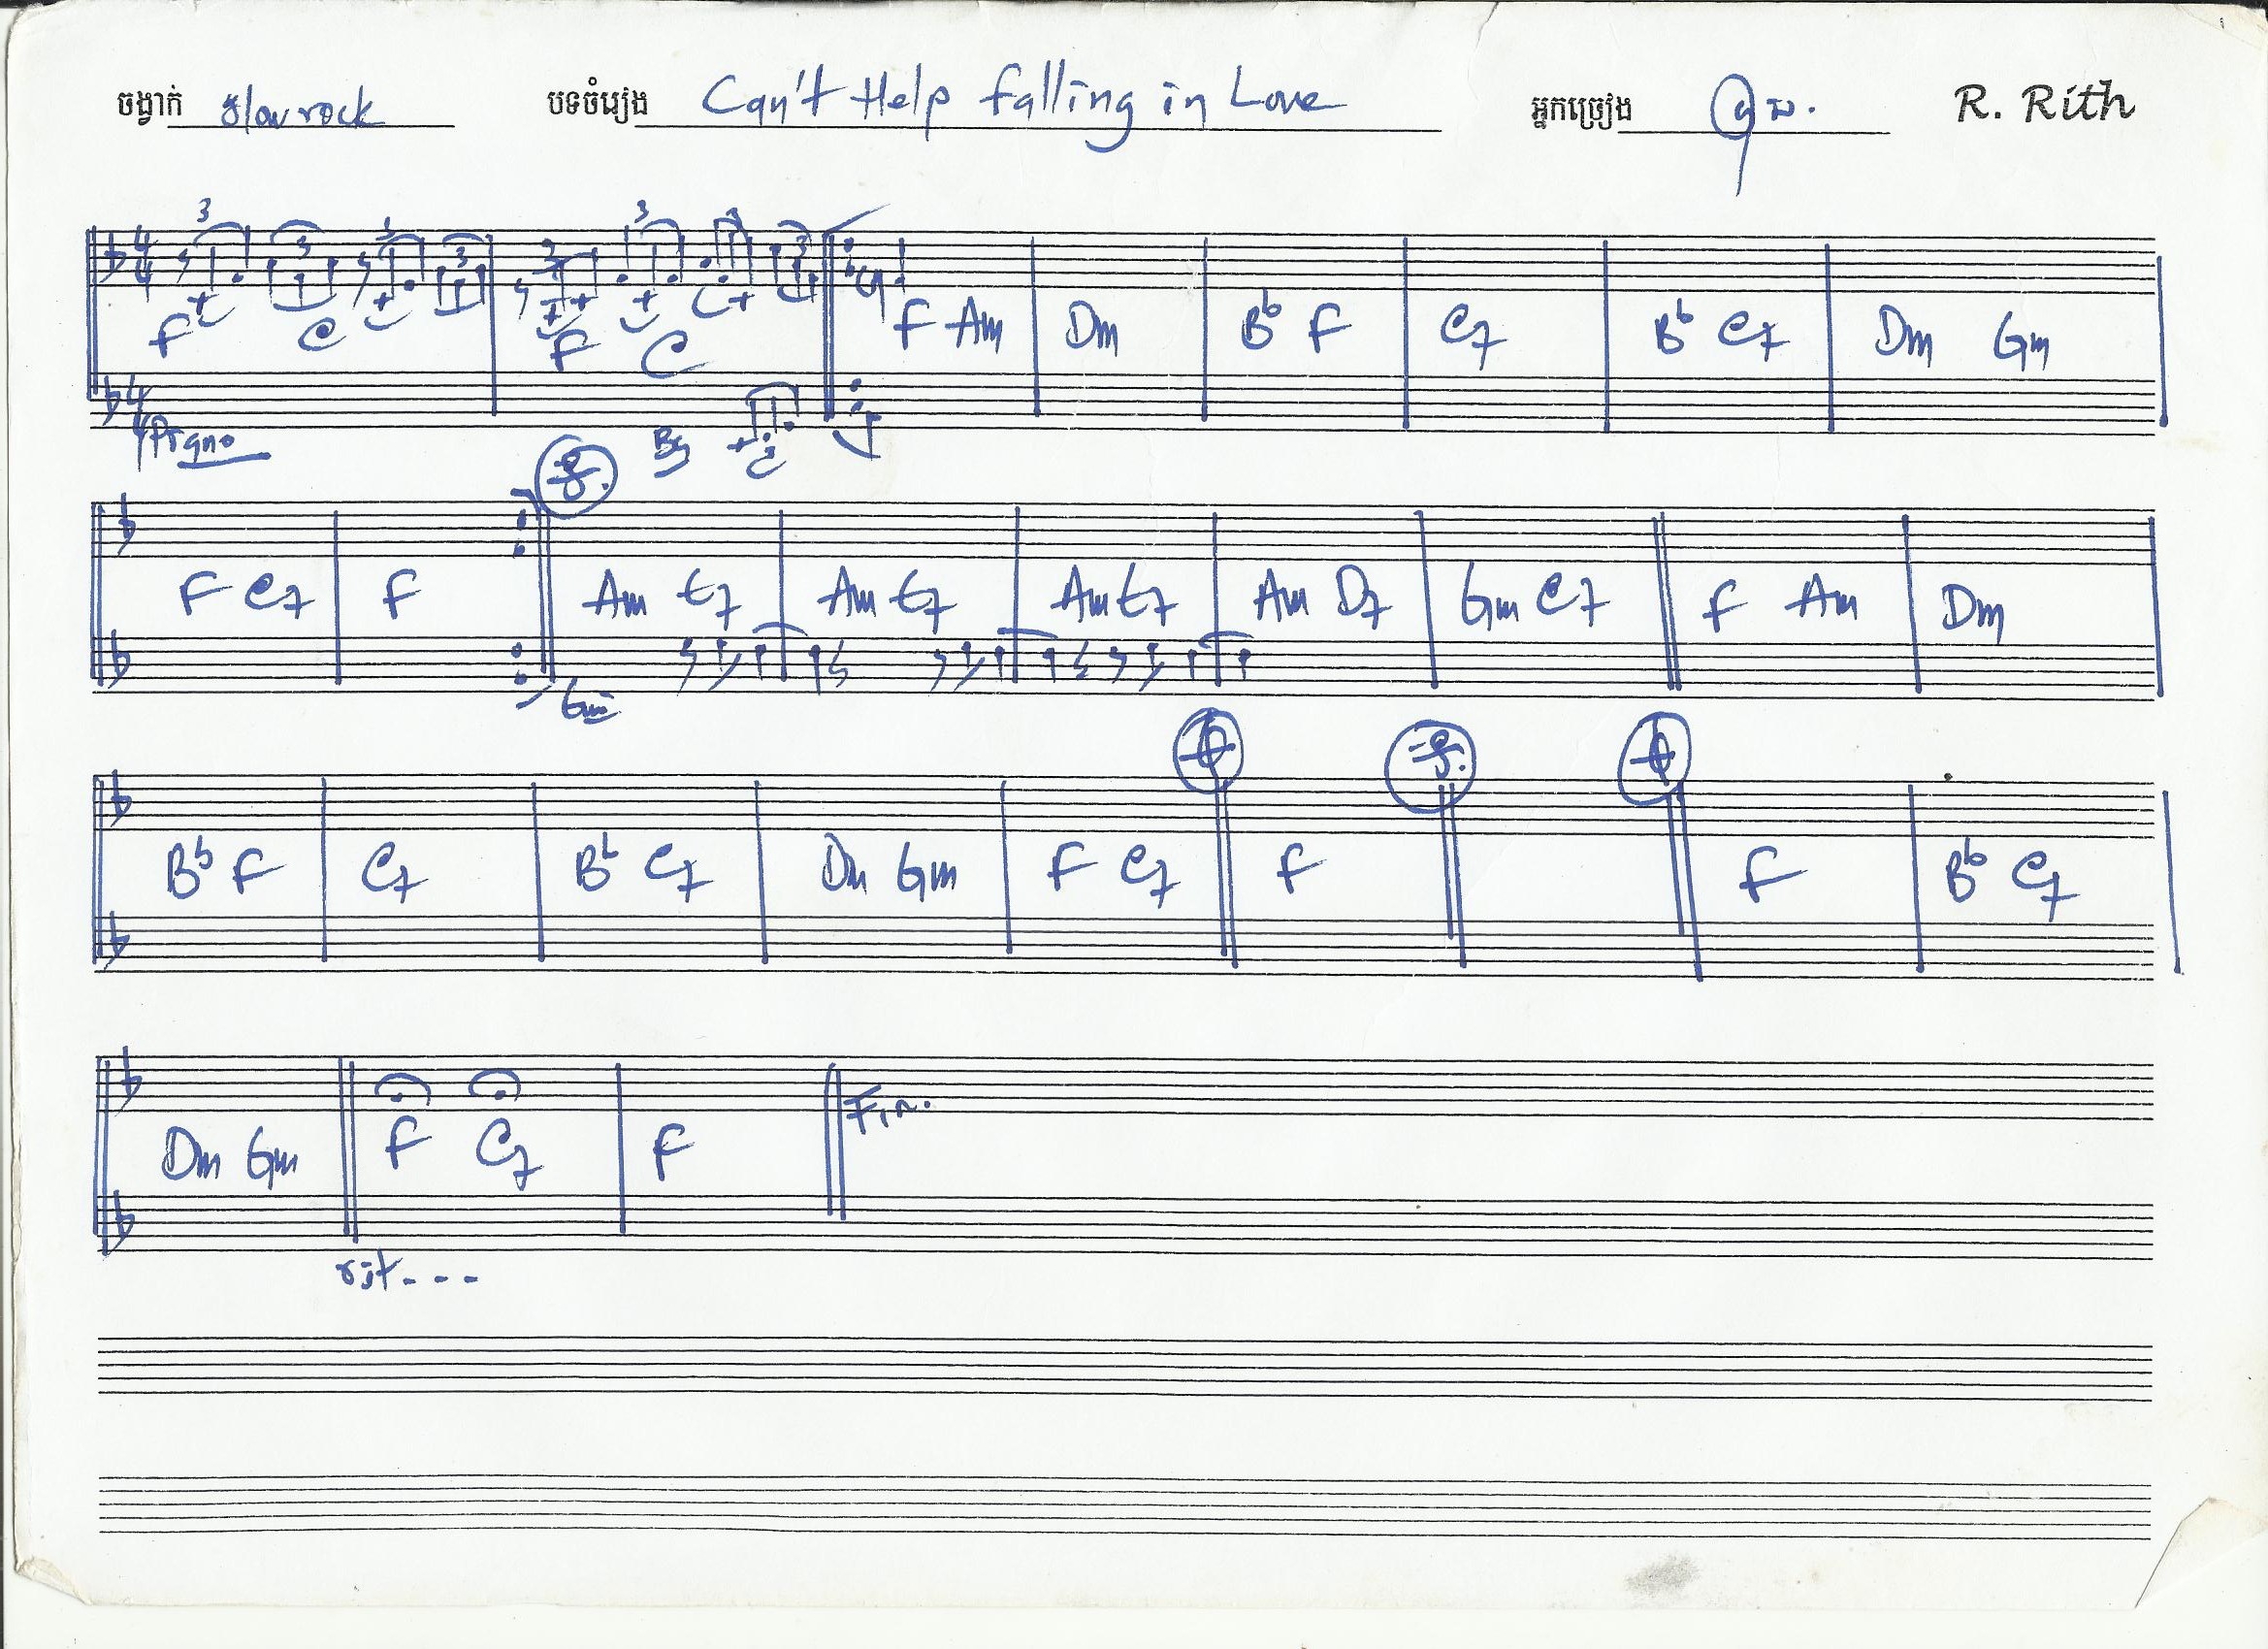 ចង្វាក់ slow rock បទចំរៀង Can't Help falling in Love អ្នកច្រៀង R. Rith
3 3 3 3 3 3 3 3
4 4
F C F C F Am Dm B♭ F C7 B♭ C7 Dm Gm
4 4
Piano
F C7 F Am E7 Am E7 Am E7 Am D7 Gm C7 F Am Dm
B♭ F C7 B♭ C7 Dm Gm F C7 F F B♭ C7
Dm Gm F C7 F Fin.
rit---